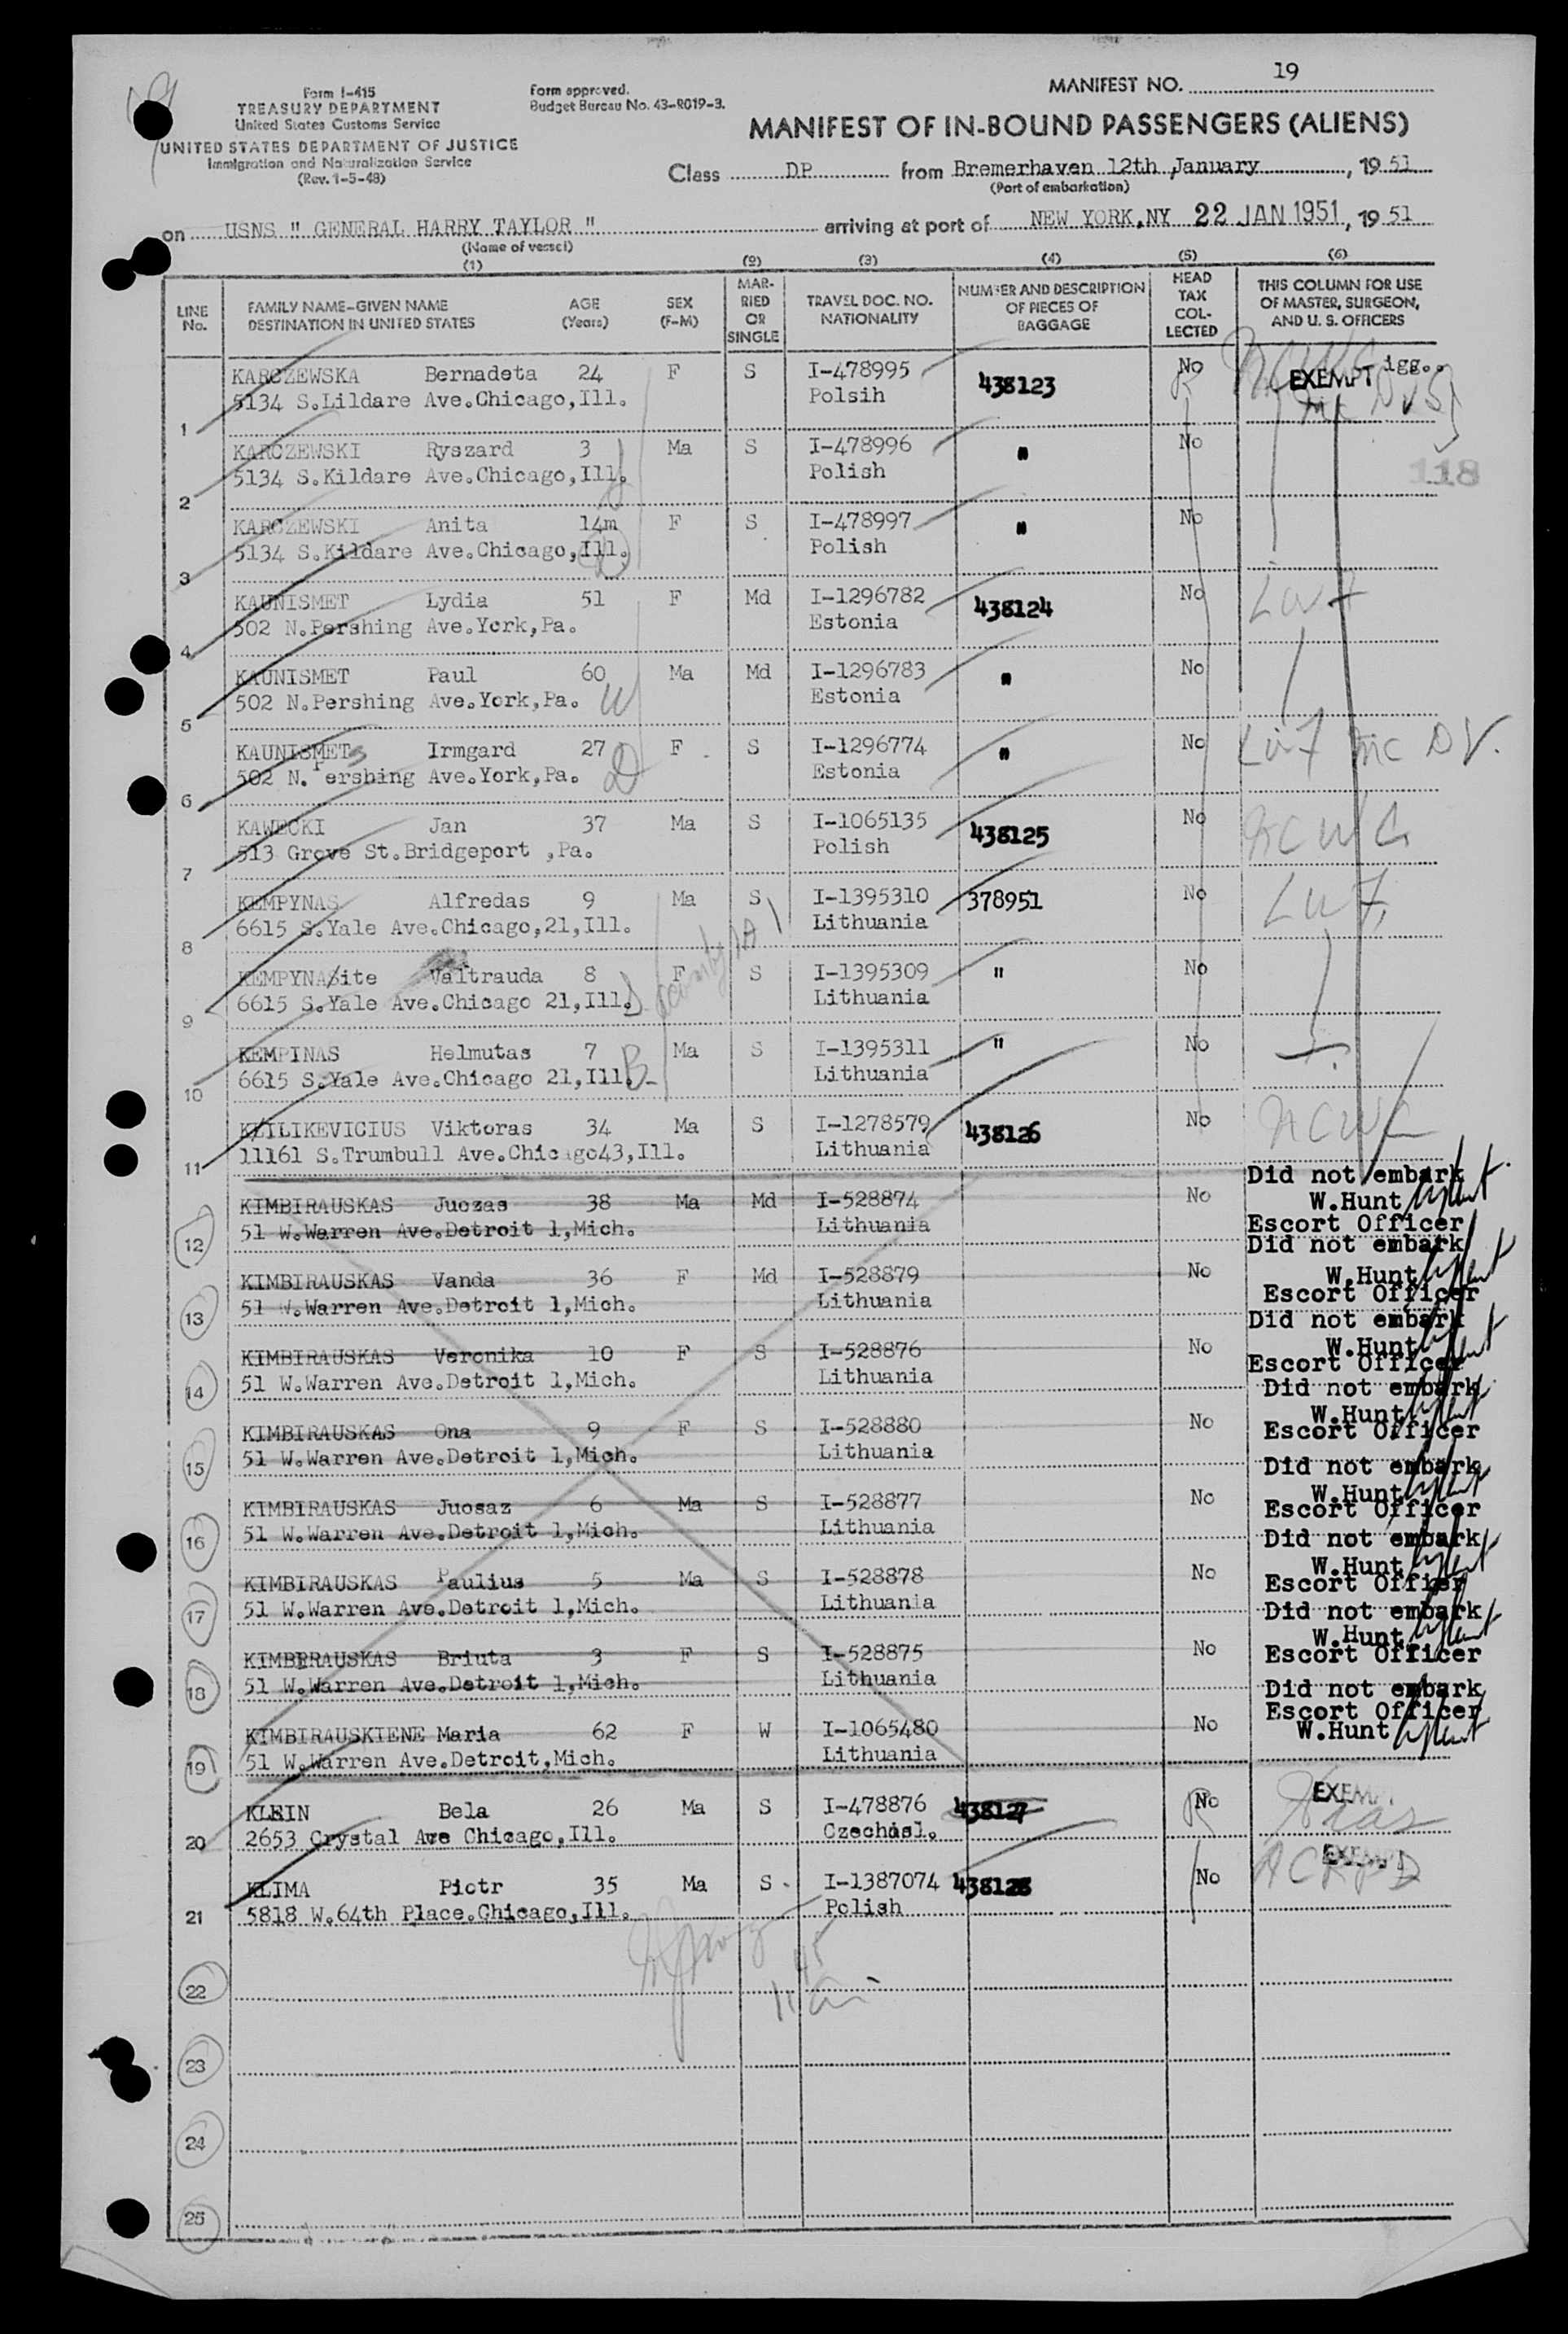 MANIFEST NO. 19
Form I-415
TREASURY DEPARTMENT
United States Customs Service
UNITED STATES DEPARTMENT OF JUSTICE
Immigration and Naturalization Service
(Rev. 1-5-48)
Form approved.
Budget Bureau No. 43-R019-3.
MANIFEST OF IN-BOUND PASSENGERS (ALIENS)
Class DP from Bremerhaven 12th January, 19 51
(Port of embarkation)
on USNS " GENERAL HARRY TAYLOR " arriving at port of NEW YORK,NY 22 JAN 1951, 19 51
(Name of vessel)
(1) (2) (3) (4) (5) (6)
LINE No. FAMILY NAME-GIVEN NAME DESTINATION IN UNITED STATES AGE (Years) SEX (F-M) MAR-RIED OR SINGLE TRAVEL DOC. NO. NATIONALITY NUMBER AND DESCRIPTION OF PIECES OF BAGGAGE HEAD TAX COL-LECTED THIS COLUMN FOR USE OF MASTER, SURGEON, AND U. S. OFFICERS
KARCZEWSKA Bernadeta 24 F S I-478995 438123 No EXEMPT igg..
1 5134 S.Lildare Ave.Chicago,Ill. Polsih
KARCZEWSKI Ryszard 3 Ma S I-478996 " No
2 5134 S.Kildare Ave.Chicago,Ill. Polish
118
KARCZEWSKI Anita 14m F S I-478997 " No
3 5134 S.Kildare Ave.Chicago,Ill. Polish
KAUNISMET Lydia 51 F Md I-1296782 438124 No
4 502 N.Pershing Ave.York,Pa. Estonia
KAUNISMET Paul 60 Ma Md I-1296783 " No
5 502 N.Pershing Ave.York,Pa. W Estonia
KAUNISMET Irmgard 27 F S I-1296774 " No
6 502 N.Pershing Ave.York,Pa. D Estonia
KAWECKI Jan 37 Ma S I-1065135 438125 No NCWC
7 513 Grove St.Bridgeport ,Pa. Polish
KEMPYNAS Alfredas 9 Ma S I-1395310 378951 No
8 6615 S.Yale Ave.Chicago,21,Ill. Lithuania
KEMPYNASite Valtrauda 8 F S I-1395309 " No
9 6615 S.Yale Ave.Chicago 21,Ill. Lithuania
KEMPINAS Helmutas 7 Ma S I-1395311 " No
10 6615 S.Yale Ave.Chicago 21,Ill. B Lithuania
KLILIKEVICIUS Viktoras 34 Ma S I-1278579 438126 No NCWC
11 11161 S.Trumbull Ave.Chicago43,Ill. Lithuania
Did not embark
KIMBIRAUSKAS Juozas 38 Ma Md I-528874 No W.Hunt
12 51 W.Warren Ave.Detroit 1,Mich. Lithuania Escort Officer
Did not embark
KIMBIRAUSKAS Vanda 36 F Md I-528879 No W.Hunt
13 51 W.Warren Ave.Detroit 1,Mich. Lithuania Escort Officer
Did not embark
KIMBIRAUSKAS Veronika 10 F S I-528876 No W.Hunt
14 51 W.Warren Ave.Detroit 1,Mich. Lithuania Escort Officer
Did not embark
KIMBIRAUSKAS Ona 9 F S I-528880 No W.Hunt
15 51 W.Warren Ave.Detroit 1,Mich. Lithuania Escort Officer
Did not embark
KIMBIRAUSKAS Juosaz 6 Ma S I-528877 No W.Hunt
16 51 W.Warren Ave.Detroit 1,Mich. Lithuania Escort Officer
Did not embark
KIMBIRAUSKAS Paulius 5 Ma S I-528878 No W.Hunt
17 51 W.Warren Ave.Detroit 1,Mich. Lithuania Escort Officer
Did not embark
KIMBERAUSKAS Briuta 3 F S I-528875 No W.Hunt
18 51 W.Warren Ave.Detroit 1,Mich. Lithuania Escort Officer
Did not embark
Escort Officer
KIMBIRAUSKIENE Maria 62 F W I-1065480 No W.Hunt
19 51 W.Warren Ave.Detroit,Mich. Lithuania
KLEIN Bela 26 Ma S I-478876 438127 No EXEMPT
20 2653 Crystal Ave Chicago,Ill. Czechosl.
KLIMA Piotr 35 Ma S I-1387074 438128 No EXEMPT
21 5818 W.64th Place.Chicago,Ill. Polish
22
23
24
25